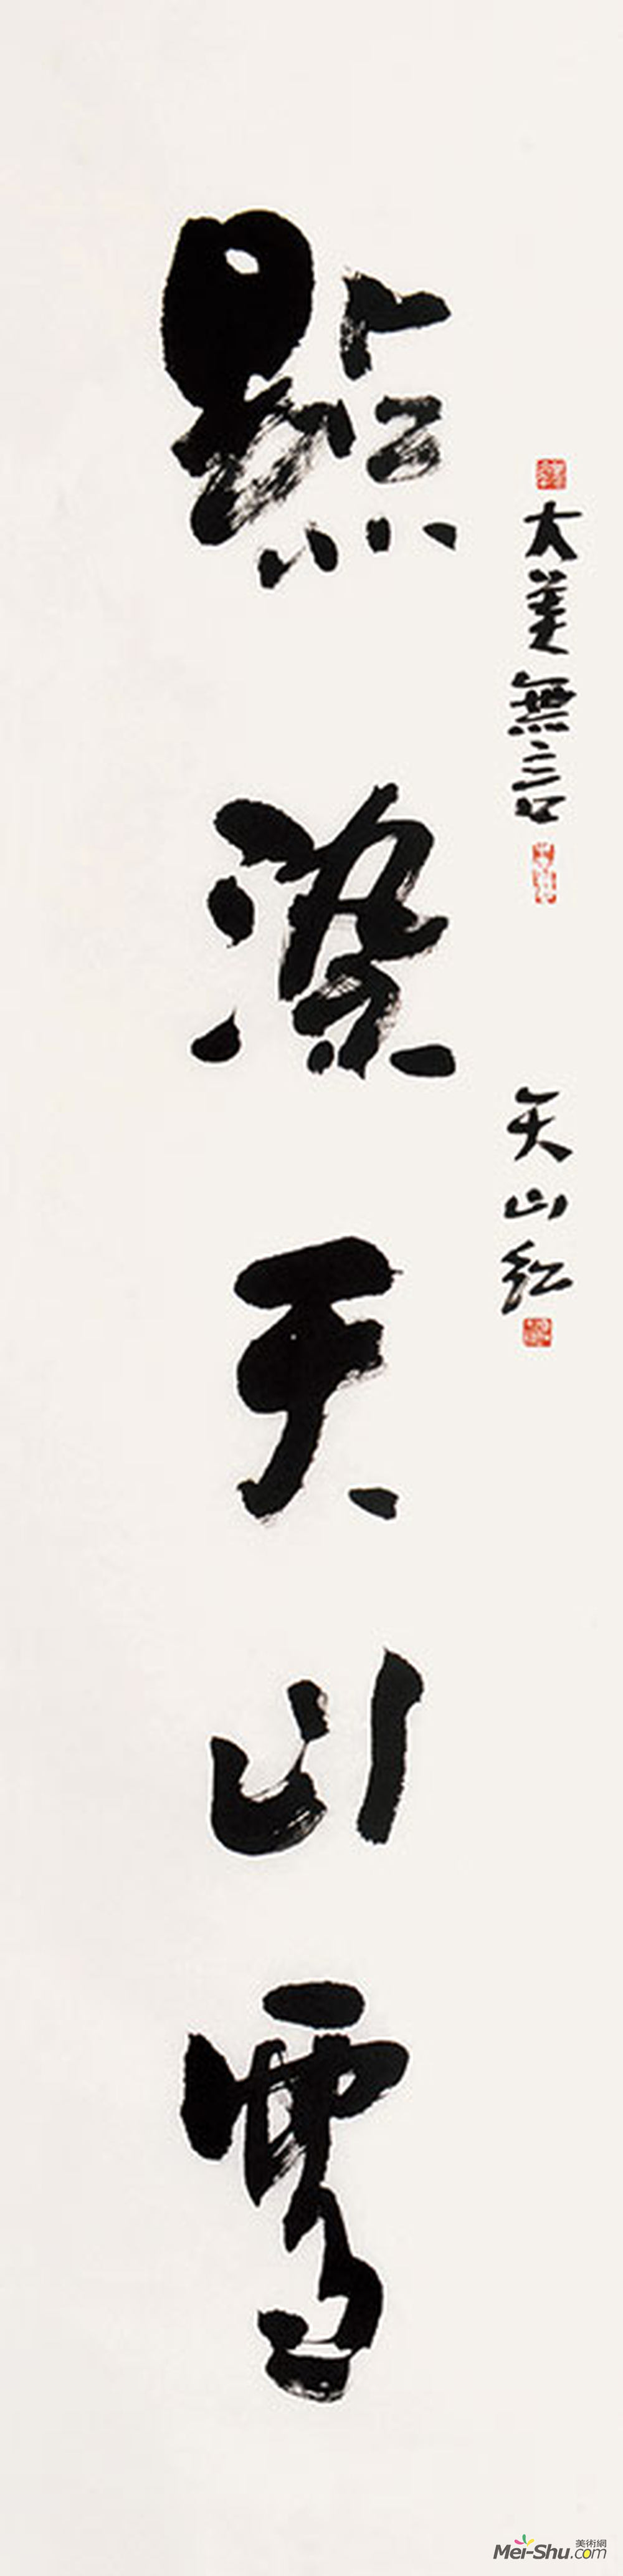 大美無言
天山紅
點染天山雪
美術網
Mei-Shu.com